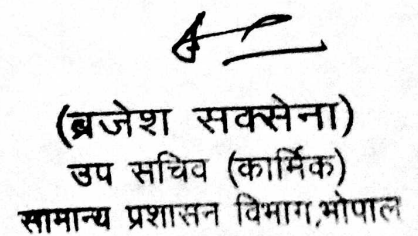 (ब्रजेश सक्सेना)
उप सचिव (कार्मिक)
सामान्य प्रशासन विभाग,भोपाल